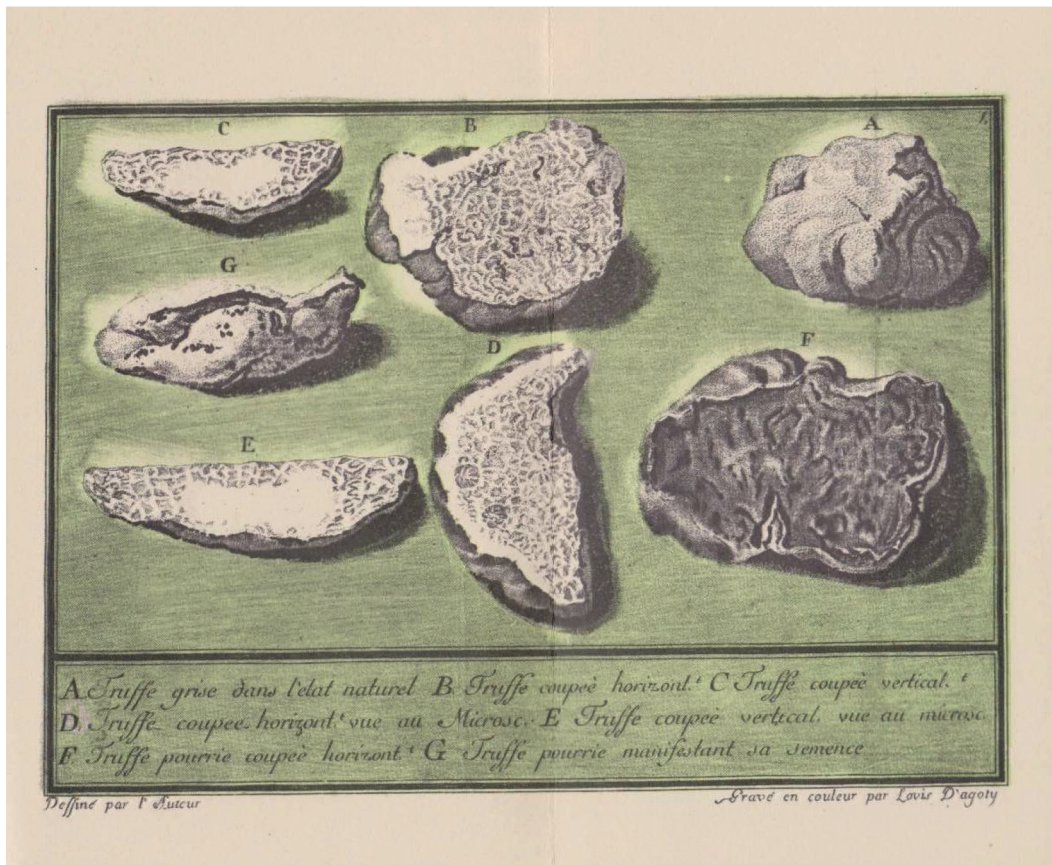 C
B
A
G
D
F
E
A Truffe grise dans l'etat naturel B. Truffe coupeè horizont.t C Truffe coupeè vertical. t
D Truffe coupee horizont.t vue au Microsc. E Truffe coupeè vertical. vue au microsc.
F Truffe pourrie coupeè horizont. t G Truffe pourrie manifestant sa semence
Dessiné par l'Auteur
Gravé en couleur par Lovis D'agoty